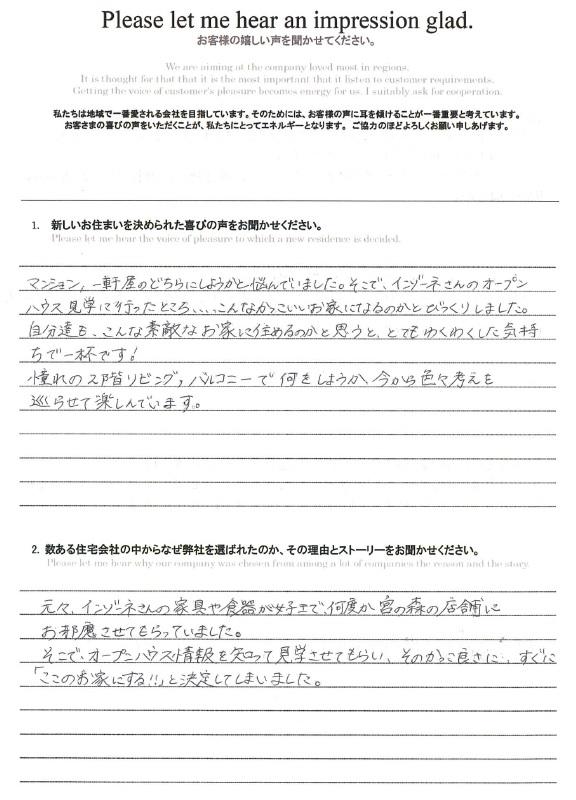 Please let me hear an impression glad.
お客様の嬉しい声を聞かせてください。
We are aiming at the company loved most in regions.
It is thought for that that it is the most important that it listen to customer requirements.
Getting the voice of customer's pleasure becomes energy for us. I suitably ask for cooperation.
私たちは地域で一番愛される会社を目指しています。そのためには、お客様の声に耳を傾けることが一番重要と考えています。
お客さまの喜びの声をいただくことが、私たちにとってエネルギーとなります。 ご協力のほどよろしくお願い申しあげます。
1. 新しいお住まいを決められた喜びの声をお聞かせください。
Please let me hear the voice of pleasure to which a new residence is decided.
マンション、一軒屋のどちらにしようかと悩んでいました。そこで、インゾーネさんのオープン
ハウス見学に行ったところ、、、、こんなかっこいいお家になるのかとびっくりしました。
自分達も、こんな素敵なお家に住めるのかと思うと、とてもわくわくした気持
ちで一杯です!
憧れの2階リビング、バルコニーで何をしようか、今から色々考えを
巡らせて楽しんでいます。
2. 数ある住宅会社の中からなぜ弊社を選ばれたのか、その理由とストーリーをお聞かせください。
Please let me hear why our company was chosen from among a lot of companies the reason and the story.
元々、インゾーネさんの家具や食器が好きで、何度か宮の森の店舗に
お邪魔させてもらっていました。
そこで、オープンハウスの情報を知って見学させてもらい、そのかっこ良さに、すぐに
「ここのお家にする!!」と決定してしまいました。